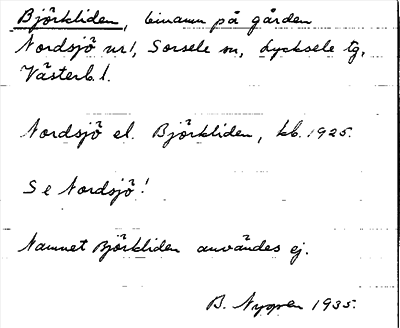 Björkliden, binamn på gården
Nordsjö nr 1, Sorsele sn, Lycksele tg,
Västerb. l.
Nordsjö el. Björkliden, kb. 1925.
Se Nordsjö!
Namnet Björkliden användes ej.
B. Nygren 1935.